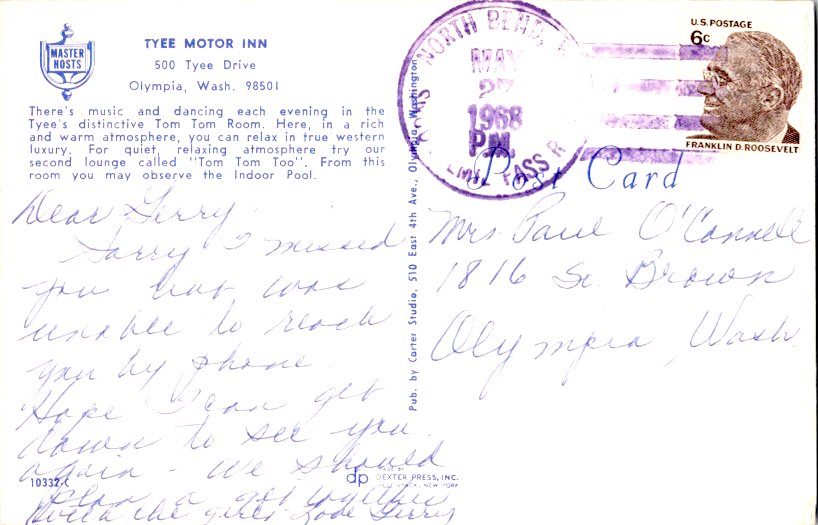 MASTER
HOSTS
TYEE MOTOR INN
500 Tyee Drive
Olympia, Wash. 98501
There's music and dancing each evening in the
Tyee's distinctive Tom Tom Room. Here, in a rich
and warm atmosphere, you can relax in true western
luxury. For quiet, relaxing atmosphere try our
second lounge called "Tom Tom Too". From this
room you may observe the Indoor Pool.
Dear Gerry,
Sorry I missed
you but was
unable to reach
you by phone.
Hope I can get
down to see you
again - we should
plan a get together
with the girls - Love Gerry
10332-C
Pub. by Carter Studio, 510 East 4th Ave., Olympia, Washington
dp
MADE BY
DEXTER PRESS, INC.
WEST NYACK, NEW YORK
NORTH BEND,
MAY
27
1968
P.M.
PASS R
U.S. POSTAGE
6c
FRANKLIN D. ROOSEVELT
Post Card
Mrs. Paul O'Connell
1816 So. Brown
Olympia, Wash.